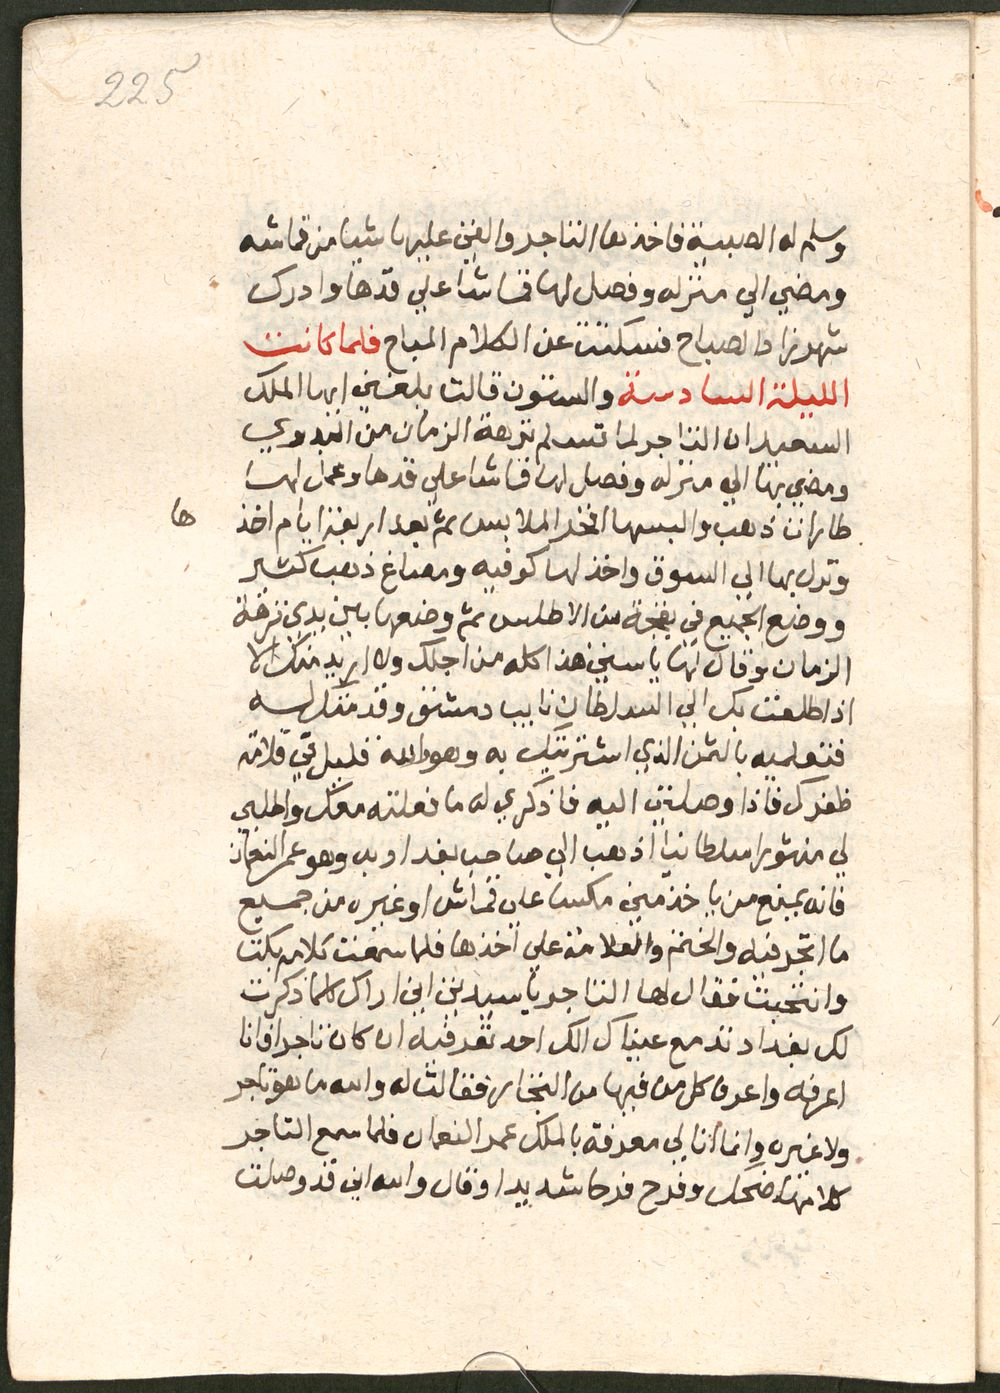 225
وسلم له الصبية فاخذها التاجر والقي عليها شيا من قماشه
ومضي الي منزله وفصل لها قماشا علي قدها وادرك
شهرزاد الصباح فسكتت عن الكلام المباح فلما كانت
الليلة السادسة والستون قالت بلغني ايها الملك
السعيد ان التاجر لما تسلم نزهة الزمان من البدوي
ومضي بها الي منزله وفصل لها قماشا علي قدها وعمل لها
طارات ذهب والبسها افخر الملابس ثم بعد اربعة ايام اخذ ها
ونزل بها الي السوق واخذ لها كوفيه ومصاغ ذهب كثير
ووضع الجميع في بقجة من الاطلس ثم وضعها بين يدي نزهة
الزمان وقال لها يا ستي هذا كله من اجلك ولا اريد منك الا
اذا طلعت بك الي السلطان نايب دمشق وقدمتك له
فتعلميه بالثمن الذي اشتريتك به وهو والله قليل في قلامة
ظفرك فاذا وصلتي اليه فاذكري له ما فعلته معك واطلبي
لي منشورا سلطانيا اذهب الي صاحب بغداد به وهو عمر النعمان
فانه يمنع من ياخذ مني مكسا علي قماش او غيره من جميع
ما اتجر فيه والختم والعلامة علي اخذها فلما سمعت كلامه بكت
وانتحبت فقال لها التاجر يا سيدتي اني اراك كلما ذكرت
لك بغداد تدمع عيناك الك احد تعرفيه ان كان تاجرا فانا
اعرفه واعرف كل من فيها من التجار فقالت له والله ما هو تاجر
ولا غيره وانما انا لي معرفة بالملك عمر النعمان فلما سمع التاجر
كلامها ضحك وفرح فرحا شديدا وقال والله اني قد وصلت